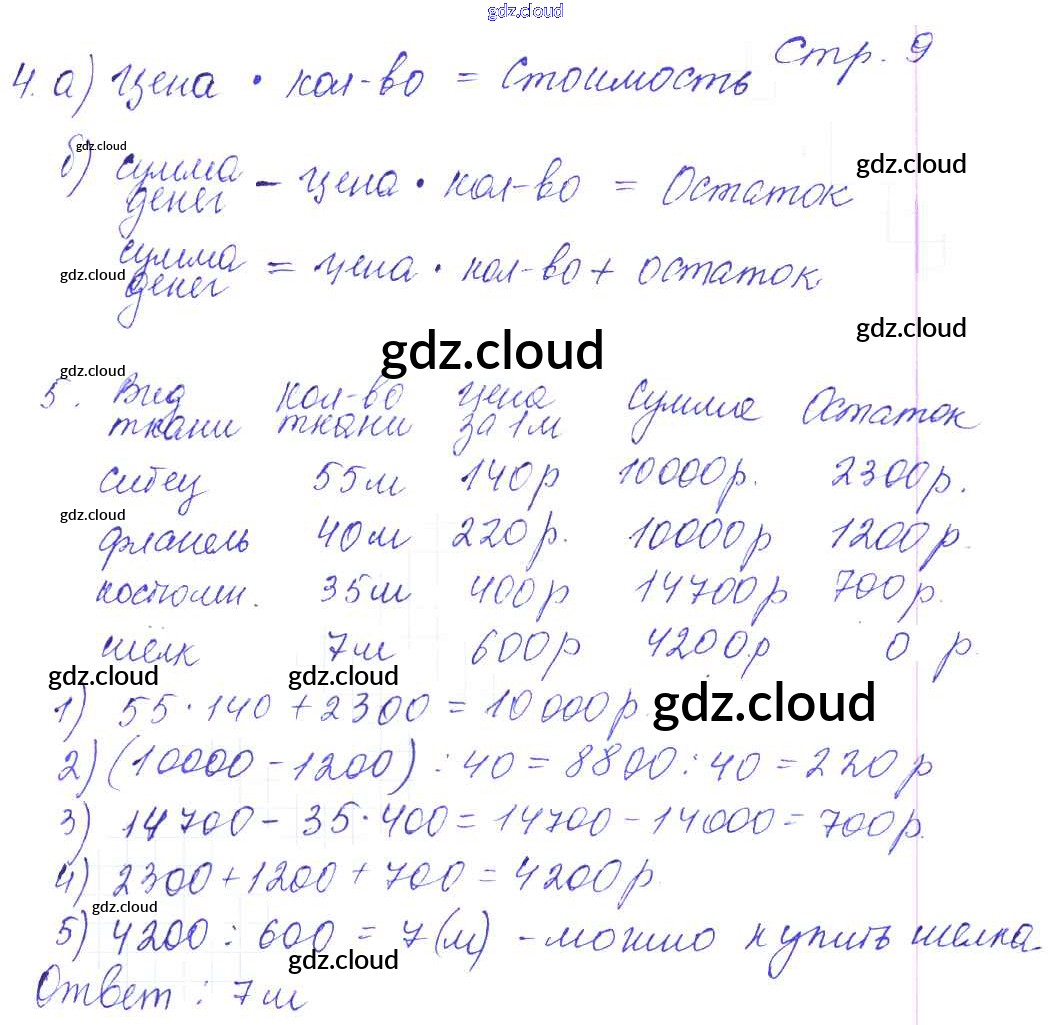 gdz.cloud
Стр. 9
4. а) Цена · кол-во = Стоимость
gdz.cloud
б) сумма денег - цена · кол-во = Остаток
gdz.cloud
сумма денег = цена · кол-во + остаток
gdz.cloud
gdz.cloud
gdz.cloud
gdz.cloud
5. Вид ткани кол-во ткани цена за 1м Сумма Остаток
ситец 55м 140р 10000р. 2300р.
gdz.cloud
фланель 40м 220р. 10000р 1200р.
костюмн. 35м 400р 14700р 700р.
шёлк 7м 600р 4200р 0 р.
gdz.cloud gdz.cloud gdz.cloud
1) 55 · 140 + 2300 = 10000р.
2) (10000 - 1200) : 40 = 8800 : 40 = 220р
3) 14700 - 35 · 400 = 14700 - 14000 = 700р.
4) 2300 + 1200 + 700 = 4200р.
gdz.cloud
5) 4200 : 600 = 7 (м) - можно купить шелка.
gdz.cloud
Ответ : 7м